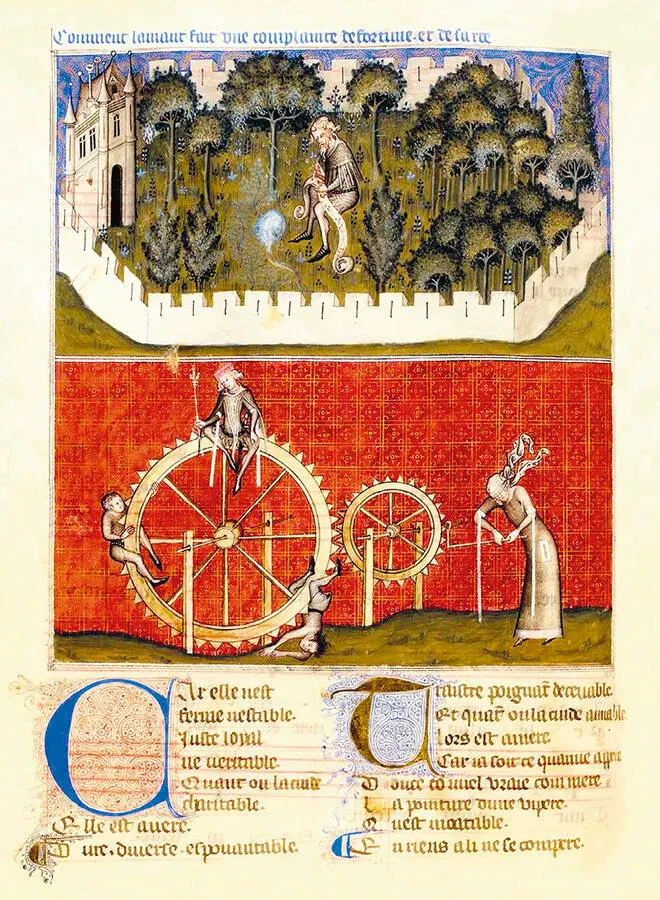 Comment lamant fait vne complainte de fortune. et de sa roe
Car elle nest
ferme nestable.
Juste loyal
ne ueritable.
Quant on la cuide
charitable.
Elle est auere.
Dure. diuerse. espouantable.
Traistre poignant deceuable.
Et quant on la cuide amiable
lors est amere.
Car ia soit ce quamie appere
Douce com miel vraie com mere
La pointure dune vipere.
Quest incurable.
En riens a li ne se compere.